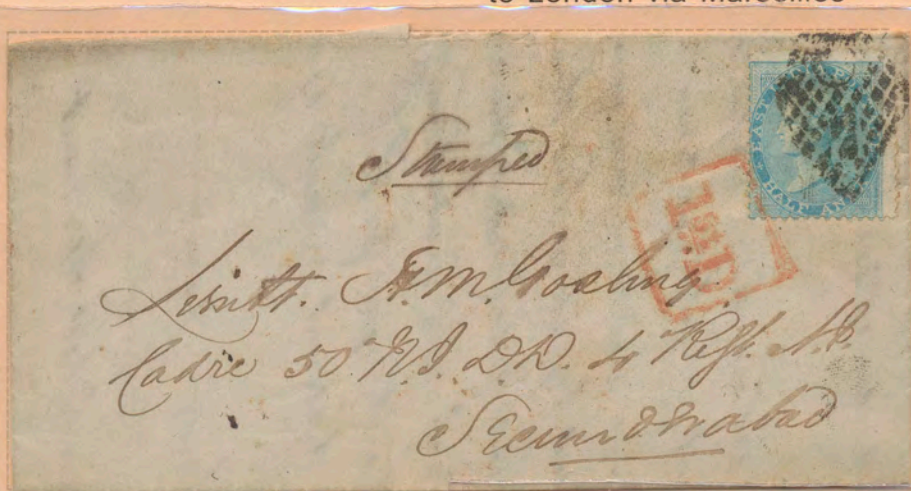 to London via Marseilles
EAST
HALF AN
Stamped
1st D
Lieutt. H. M. Gosling
Cadre 50 N.I. D.D. 4 Regt. N.I.
Secunderabad